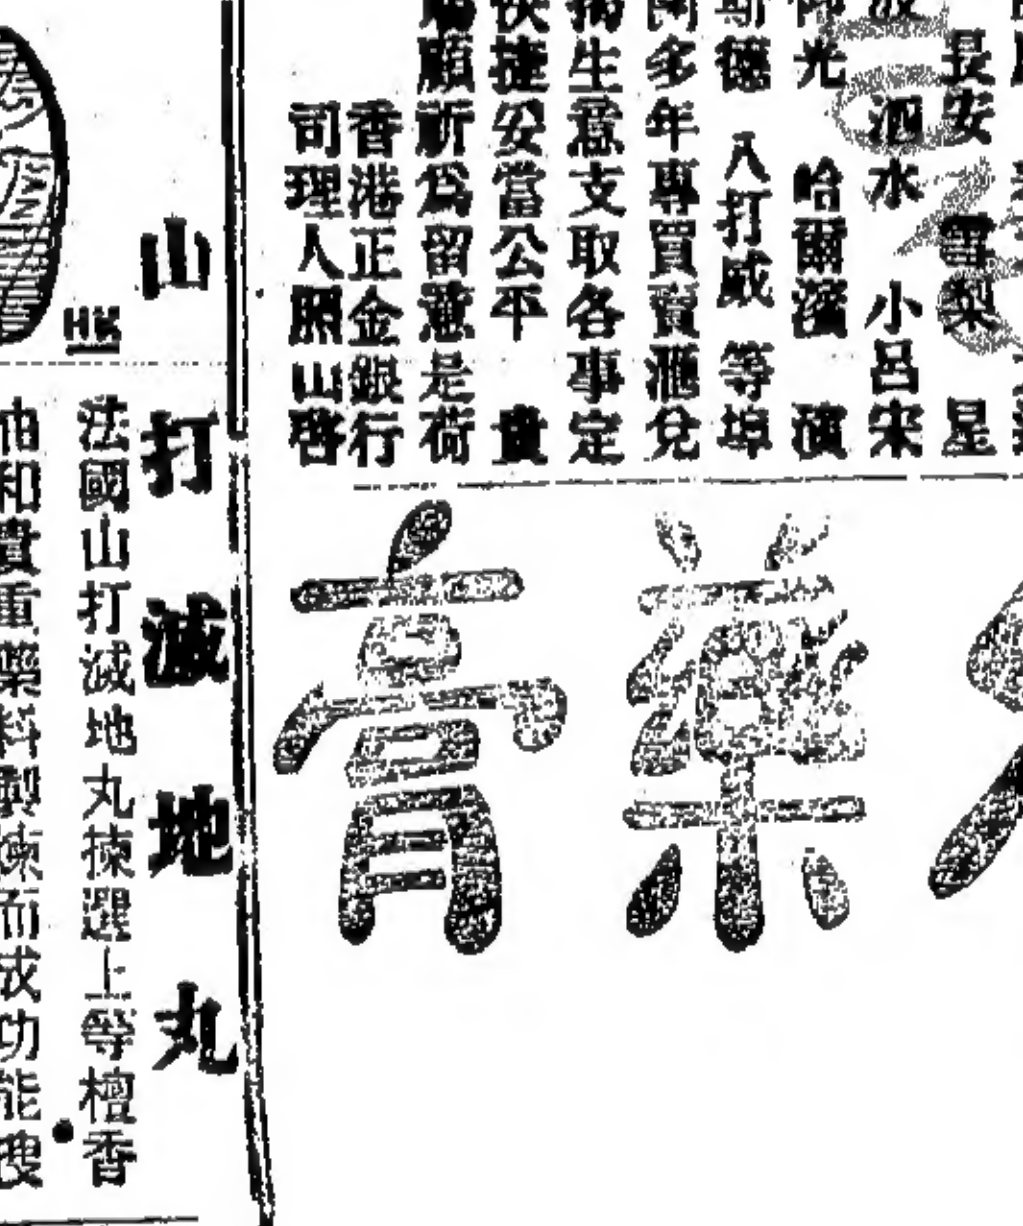 長安
雪梨
星
泗水
小呂宋
光
哈爾濱
磺
斯德
入打威
等埠
多年專買賣滙兌
生意支取各事定
快捷妥當公平
貴
顧祈為留意是荷
香港正金銀行
司理人照山啓
藥膏
山打滅地丸
法國山打滅地丸揀選上等檀香
油和貴重藥料製揀而成功能搜